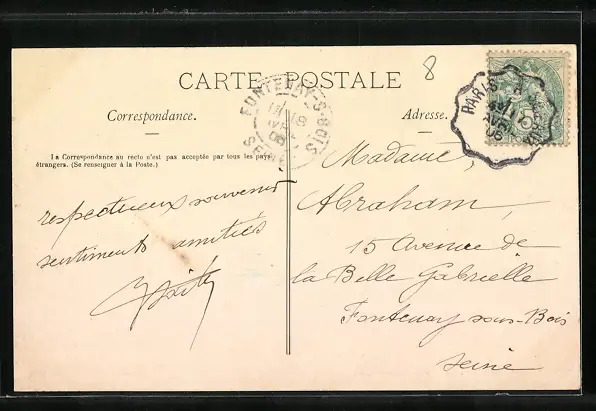 8
CARTE POSTALE
Correspondance.
Adresse.
La Correspondance au recto n'est pas acceptée par tous les pays
étrangers. (Se renseigner à la Poste.)
FONTENAY-S-BOIS
SEINE
PARIS
AVRIL
06
5
Madame,
Abraham,
15 Avenue de
la Belle Gabrielle
Fontenay sous-Bois
Seine
respectueux souvenir
sentiments amitiés